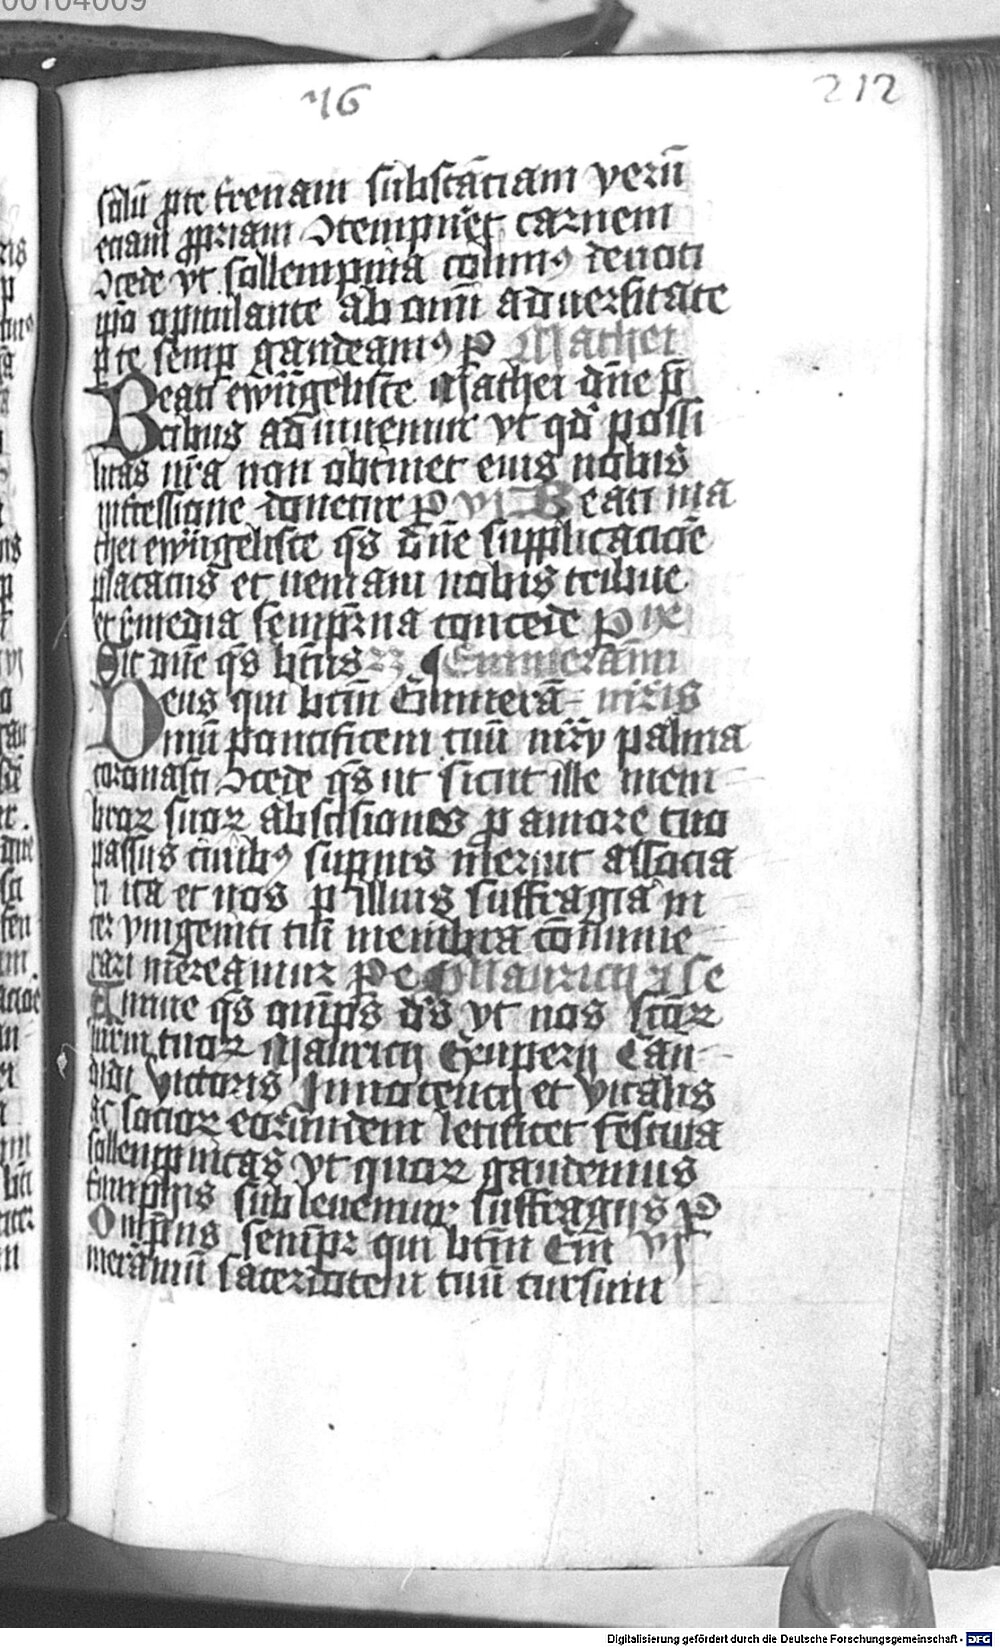 00104009
76 212
solū p te terenam substāciam verū
eciam ꝓpriam ɔtempneret carnem
ɔcede vt sollempnia colimꝰ deuoti
ipīo opitulante ab omī aduersitate
p te semp gaudeamꝰ P Mathei
Beati ewāgeliste Mathei dn̄e p̄
cibus adiuuemur vt qd̄ possi
litas nr̄a non obtinet eius nobis
int̄cessione donetur P vl Beati ma
thei ewāgeliste qs̄ dn̄e supplicacioē
placatus et ueniam nobis tribue
et r̄media semp̄rna concede P
Sit dn̄e qs̄ btūs ¶ Emmerāmi
Deus qui btm̄ Emmerā= mr̄is
mū pontificem tuū mr̄ȳ palma
coronasti ɔcede qs̄ ut sicut ille mem=
broꝝ suoꝝ abscisiones p amore tuo
passus ciuibꝰ supnis meruit associa
ri ita et nos p illius suffragia in
ter vnigeniti tui membra cōnume
rari mereamur Pe Mauricij ⁊ se
Annue qs̄ om̄ps ds̄ vt nos scōꝝ
mr̄m tuoꝝ Mauricij Exuperij Can=
didi Victoris Innocencij et Vitalis
Ac socioꝝ eorundem letificet festiua
sollempnitas vt quoꝝ gaudemus
triumphis subleuemur suffragijs P
Om̄ps semp̄r qui btm̄ Em̄ vl
meramū sacerdotem tuū cursum
Digitalisierung gefördert durch die Deutsche Forschungsgemeinschaft - DFG